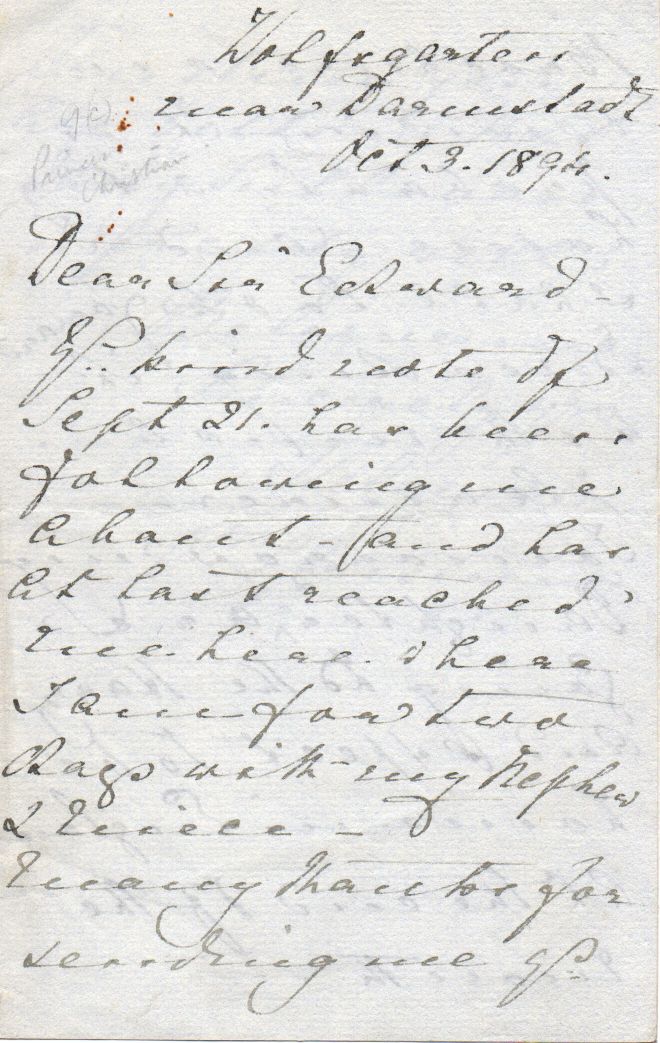 Wolfsgarten
near Darmstadt
Oct 3. 1894.
Princess
Christian
Dear Sir Edward –
Yr. kind note of
Sept 21. has been
following me
about – and has
at last reached
me here where
I am for two
days with my Nephew
& Niece –
Many thanks for
sending me yr.